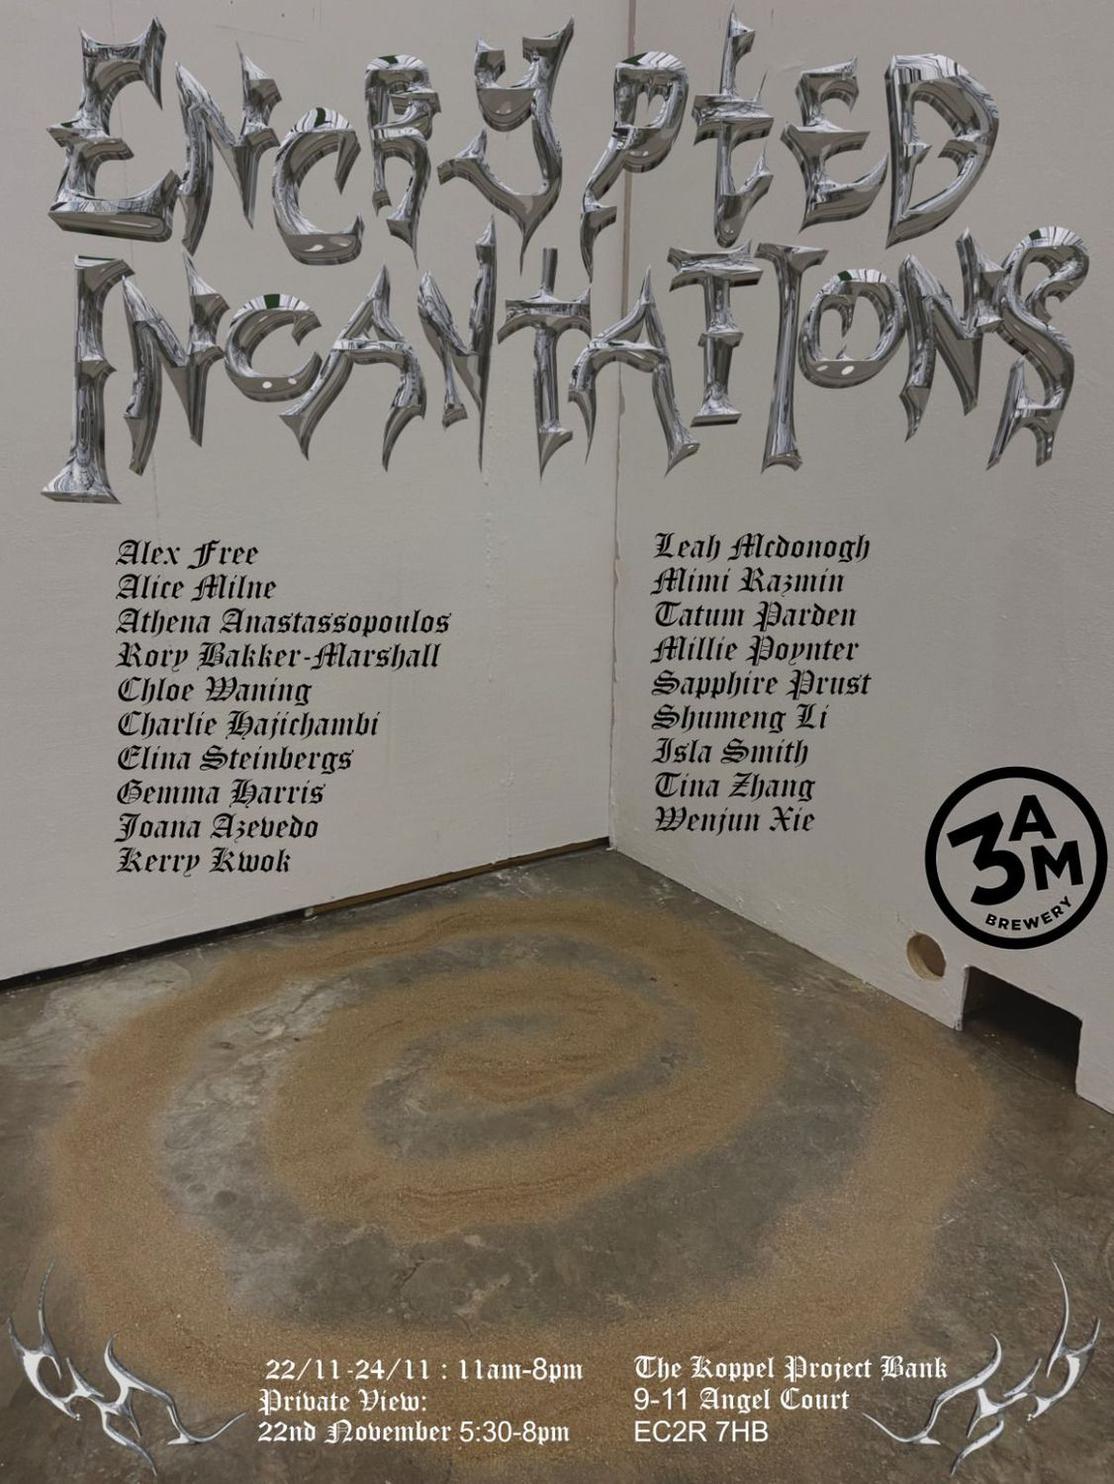 ENCRYPtED
INCANTATIONS
Alex Free
Alice Milne
Athena Anastassopoulos
Rory Bakker-Marshall
Chloe Waning
Charlie Hajichambi
Elina Steinbergs
Gemma Harris
Joana Azevedo
Kerry Kwok
Leah Mcdonogh
Mimi Razmin
Tatum Parden
Millie Poynter
Sapphire Prust
Shumeng Li
Isla Smith
Tina Zhang
Wenjun Xie
3AM
BREWERY
22/11-24/11 : 11am-8pm
Private View:
22nd November 5:30-8pm
The Koppel Project Bank
9-11 Angel Court
EC2R 7HB